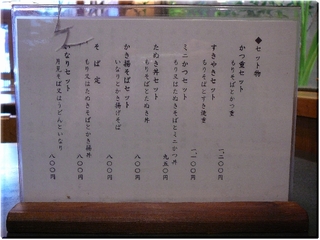 ◆セット物
かつ重セット
もりそばとかつ重
一、二〇〇円
すきやきセット
もりそばとすき焼重
一、一〇〇円
ミニかつセット
もり又はたぬきそばとミニかつ丼
九五〇円
たぬき丼セット
もりそばとたぬき丼
八〇〇円
かき揚そばセット
いなりとかき揚げそば
八〇〇円
そば定
もり又はたぬきそばとかき揚丼
八〇〇円
いなりセット
月見そば又はうどんといなり
八〇〇円